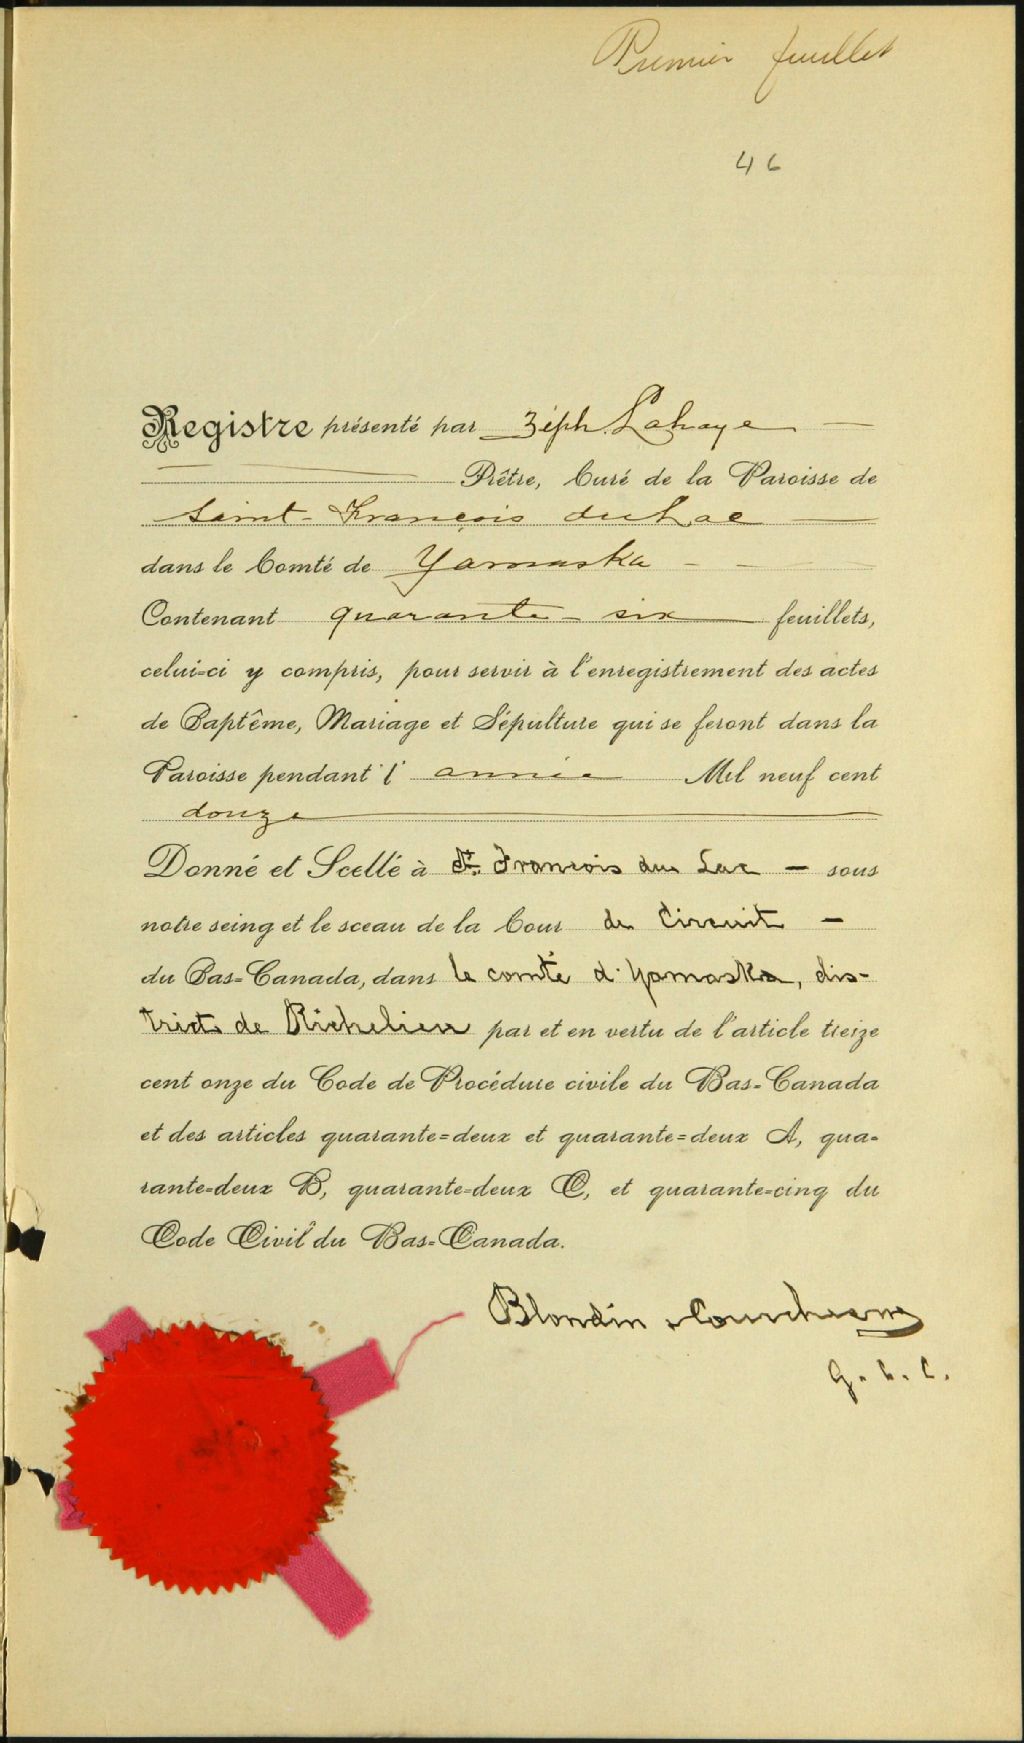 Premier feuillet
46
Registre présenté par Zéph. Lahaye
Prêtre, Curé de la Paroisse de
Saint-François du Lac
dans le Comté de Yamaska
Contenant quarante-six feuillets,
celui-ci y compris, pour servir à l'enregistrement des actes
de Baptême, Mariage et Sépulture qui se feront dans la
Paroisse pendant l'année Mil neuf cent
douze
Donné et Scellé à St. François du Lac sous
notre seing et le sceau de la Cour de Circuit
du Bas-Canada, dans le comté d'Yamaska, dis-
trict de Richelieu par et en vertu de l'article treize
cent onze du Code de Procédure civile du Bas-Canada
et des articles quarante-deux et quarante-deux A, qua-
rante-deux B, quarante-deux C, et quarante-cinq du
Code Civil du Bas-Canada.
Blondin & Courchesne
G. C. C.